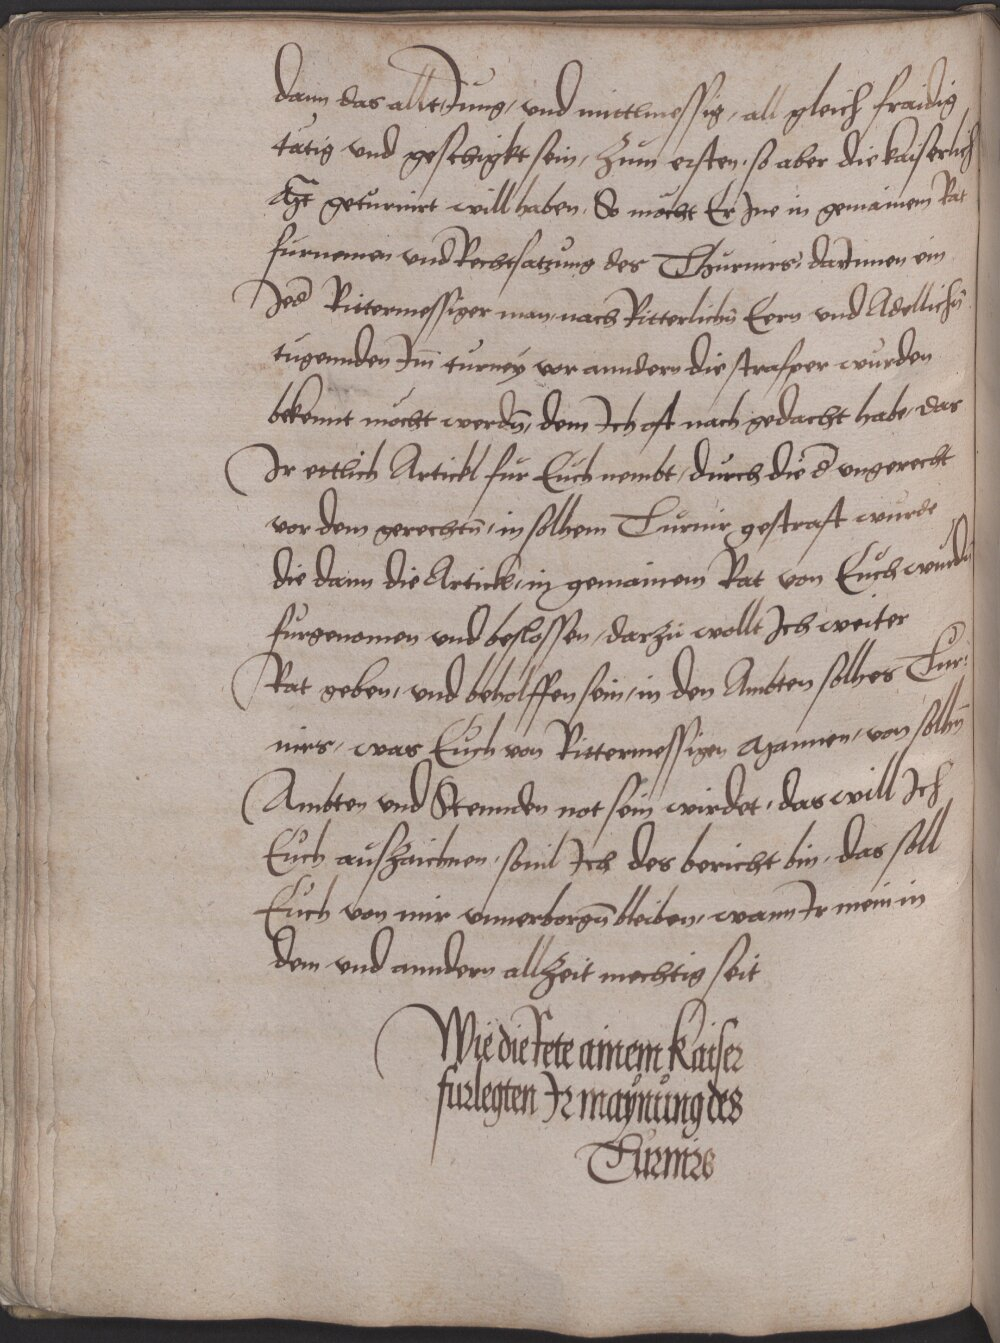 dann das allt Jung, und mittlmessig, all gleich fraidig
tätig und geschigkt sein, Zum ersten, so aber die kaiserlich
Mt geturnirt will haben, So möcht Er Ine in gemainem Rat
furnemen und Rechtsatzung des Thurnirs, darInnen ein
Jed Rittermessiger man, nach Ritterlichn Eern und Adellichn
tugennden Im turney vor anndern die strafper wurden
bekennt möcht werdn, dem Ich oft nach gedacht habe, das
Ir ettlich Artickl für Euch nembt, durch die d ungerecht
vor dem gerechtn, in solhem Turnir gestraft würde
die dann die Artickl, in gemainem Rat von Euch wurdn
furgenomen und beslossen, darzu wollt Ich weiter
Rat geben, und beholffen sein, in den Ambten solhes Tur:
nirs, was Euch von Rittermessigen Mannen, von solhn
Ambten und Stennden not sein wirdet, das will Ich
Euch aufzaichnen, sovil Ich des bericht bin, das soll
Euch von mir unverborgn bleiben, wann Ir mein in
dem und anndern allzeit mechtig seit
Wie die Rete ainem Kaiser
furlegten Ir maynung des
Turnirs